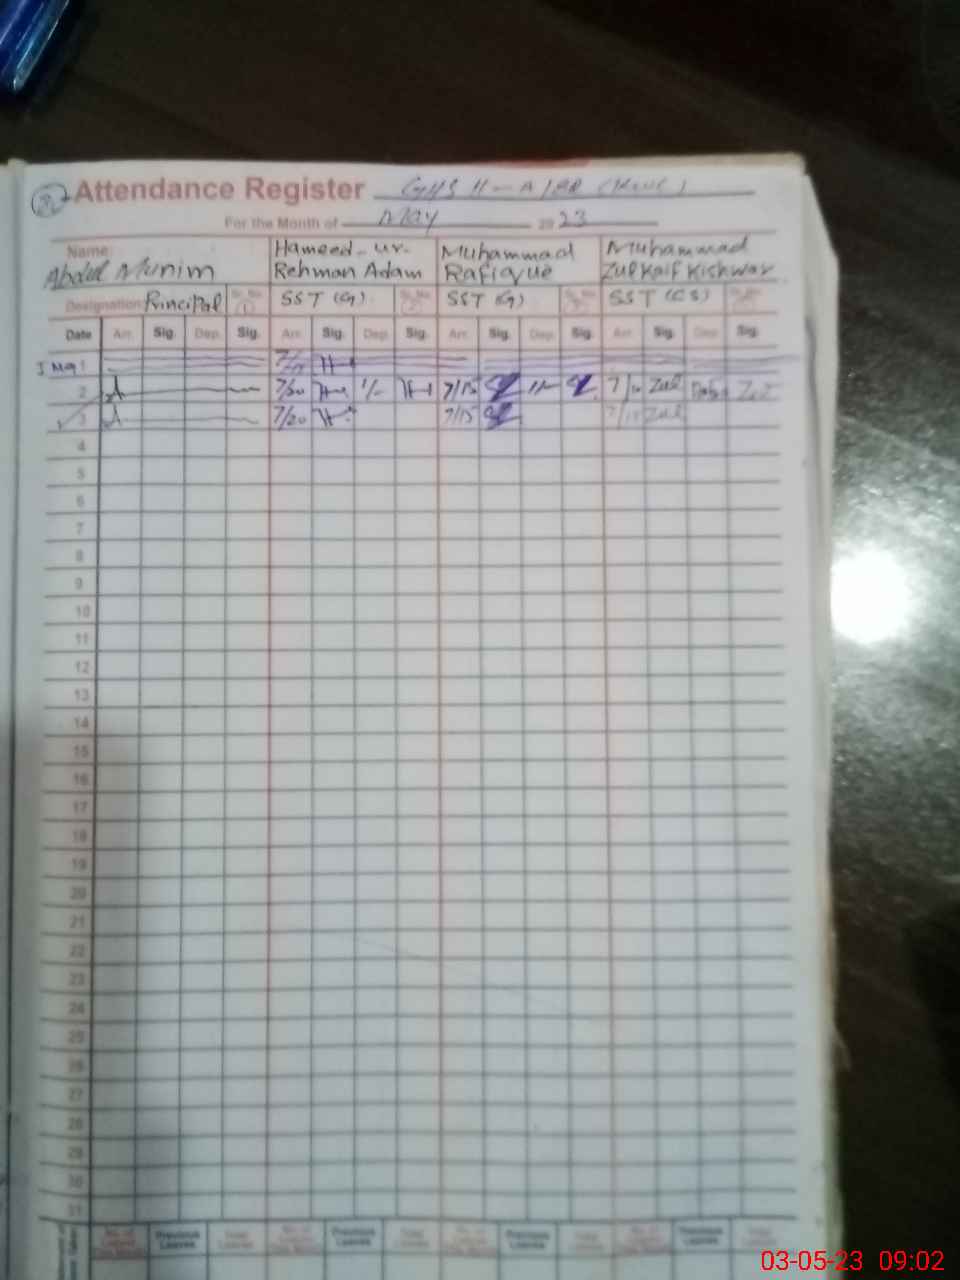 Attendance Register GHS 11-A
For the Month of May 2023
Name: Abdul Munim Hameed-ur-Rehman Adam Muhammad Rafique Muhammad Zulkaif Kishwar
Designation: Principal Sr. No. 1 SST (G) Sr. No. 2 SST (G) Sr. No. 3 SST (CS) Sr. No.
Date Arr. Sig. Dep. Sig. Arr. Sig. Dep. Sig. Arr. Sig. Dep. Sig. Arr. Sig. Dep. Sig.
1 May 1
2 A 7/20 H 1/- H 7/15 1/- 7/10 Zul Zul
3 A 7/20 H 7/15 7/15 Zul
4
5
6
7
8
9
10
11
12
13
14
15
16
17
18
19
20
21
22
23
24
25
26
27
28
29
30
31
Previous Leaves Total Leaves Previous Leaves Total Leaves Previous Leaves Total Leaves Previous Leaves Total Leaves
03-05-23 09:02